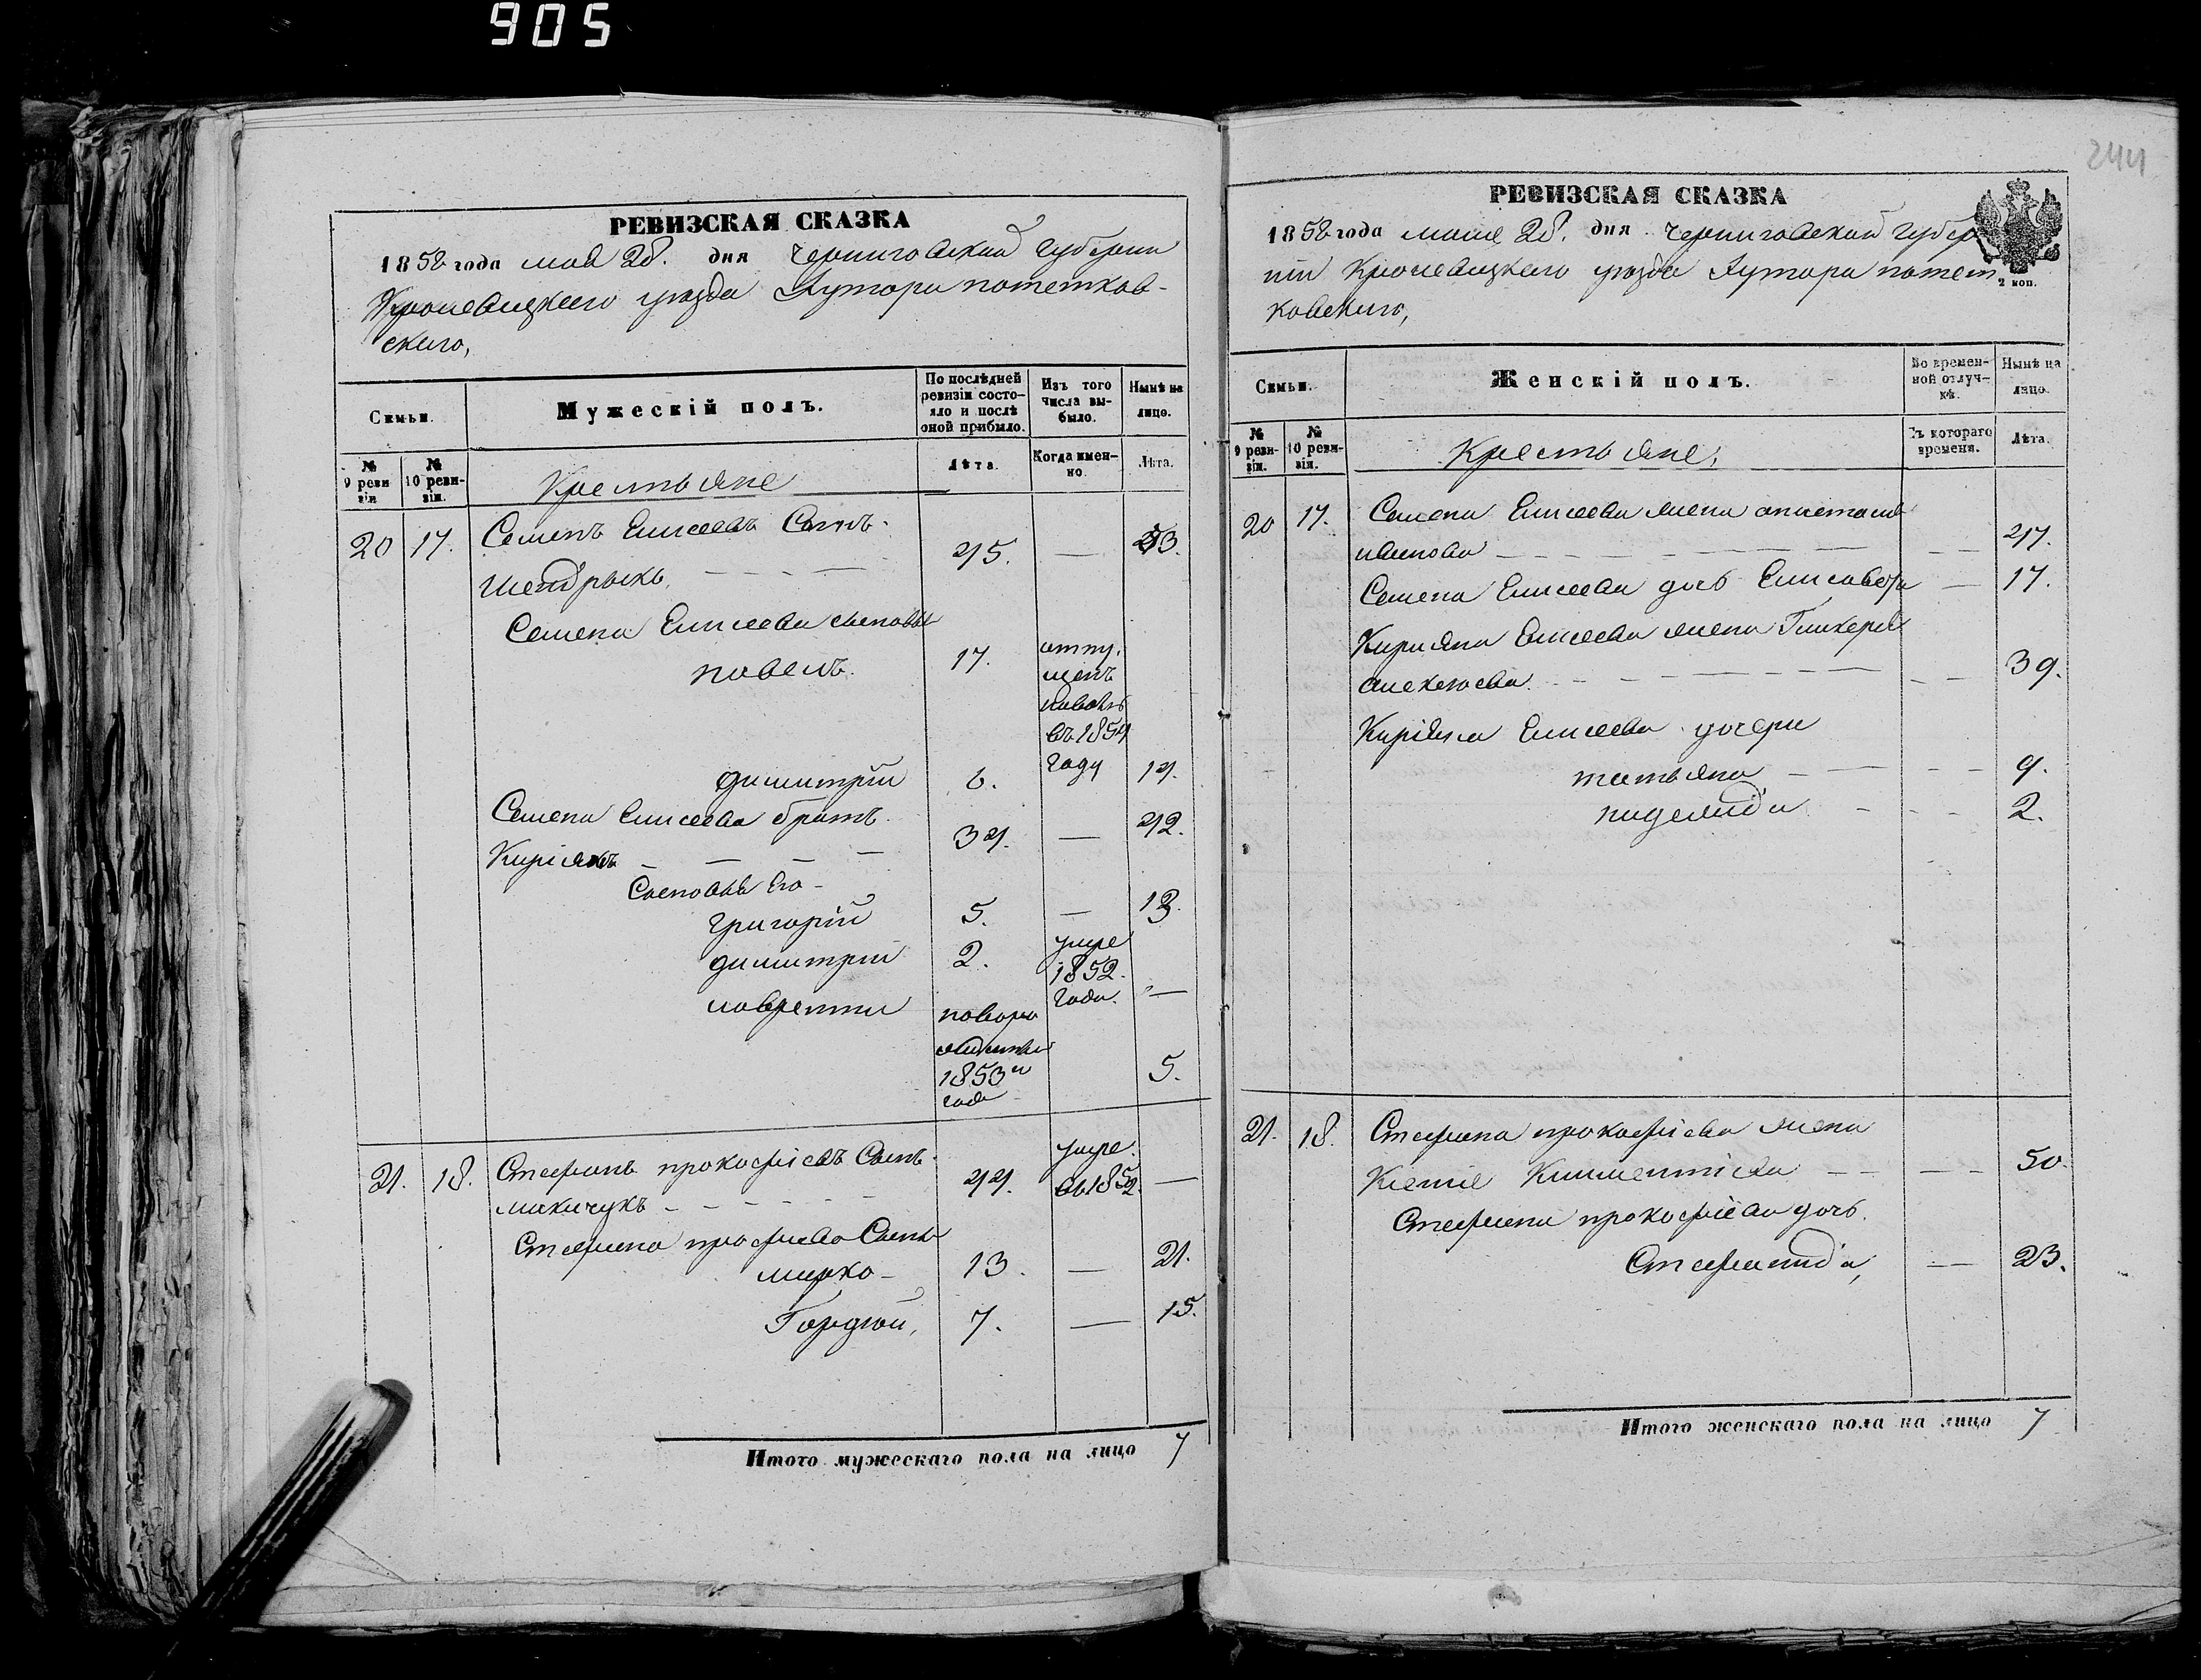 905
РЕВИЗСКАЯ СКАЗКА
1858 года мая 28. дня Черниговской Губернии
Кролевецкого уезда Хутора потетков-
ского,
Семьи.
Мужескій полъ.
По послѣдней ревизіи состояло и послѣ оной прибыло.
Изъ того числа выбыло.
Нынѣ на лицо.
№ 9 ревизіи
№ 10 ревизіи.
Крестьяне
Лѣта.
Когда именно.
Лѣта.
20 17. Семенъ Елисеевъ Сынъ 45. — 53.
Семена Елисеева сыновья
павелъ. 17. отпущенъ
въ 1854
году
димитрій 6. 14.
Семена Елисеева братъ
Киріякъ — — — — 34. — 42.
Сыновья Его -
григорій 5. — 13.
димитрій 2. умре
1852.
года. —
лаврентій
1853 го
года 5.
21. 18. Стефанъ прокофіевъ Сынъ 44. умре
въ 1852. —
микичукъ - - - -
Стефана профиева Сынъ
марко - 13. — 21.
Гордѣй, 7. — 15.
Итого мужескаго пола на лицо 7
244
РЕВИЗСКАЯ СКАЗКА
1858 года маия 28. дня Черниговской Губер
ніи Кролевецкого уезда Хутора потет
2 коп.
ковского,
Семьи.
Женскій полъ.
Во временной отлучкѣ.
Нынѣ на лицо.
№ 9 ревизіи.
№ 10 ревизіи.
Крестьяне,
Съ котораго времени.
Лѣта.
20 17. Семена Елисеева жена анастасия
иванова - - - - 47.
Семена Елисеева дочь Елисавета — 17.
Кирияна Елисеева жена Гликерія
алексѣева - - - - 39.
Киріяка Елисеева дочери
татьяна - - - 9.
надежда - - - 2.
21. 18. Стефана прокофіева жена
Ксенія Климентіева - - - - 50.
Стефана прокофіева дочь
Степанида, — 23.
Итого женскаго пола на лицо 7